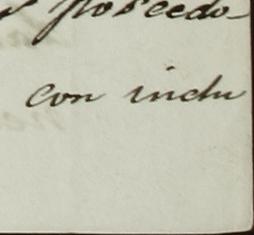 y poseedo-
con inclu